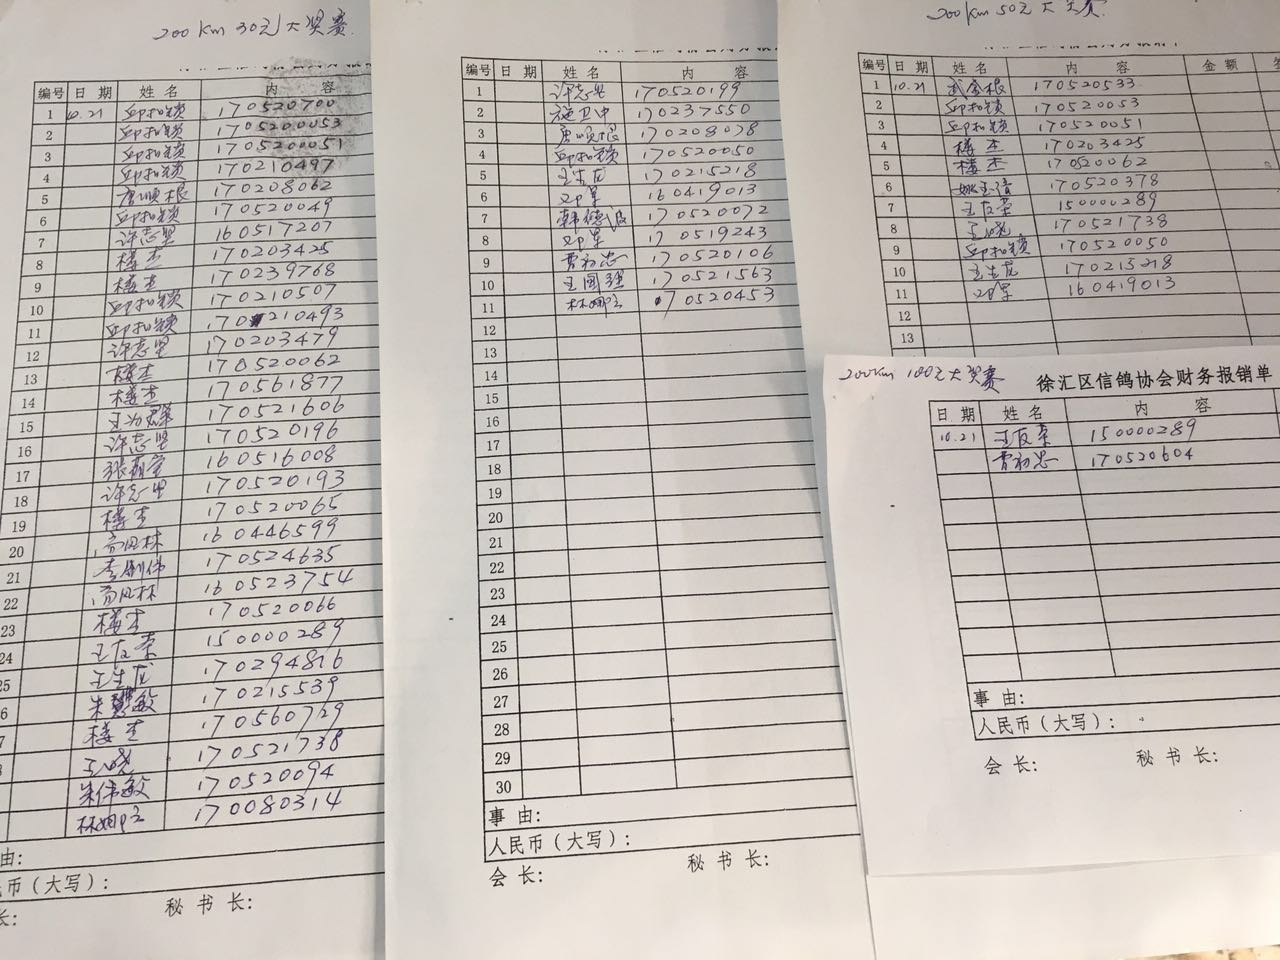 200km 30元大奖赛
编号 日期 姓名 内容
1 10.21 邱扣锁 170520700
2 邱扣锁 1705200053
3 邱扣锁 1705200051
4 邱扣锁 170210497
5 唐顺根 170208062
6 邱扣锁 170520049
7 许志坚 160517207
8 楼杰 170203425
9 楼杰 170239768
10 邱扣锁 170210507
11 邱扣锁 170210493
12 许志坚 170203479
13 楼杰 170520062
14 楼杰 170561877
15 170521606
16 许志坚 170520196
17 160516008
18 许志坚 170520193
19 楼杰 170520065
20 高凤林 160446599
21 170524635
22 高凤林 160523754
23 楼杰 170520066
24 王友荣 150000289
25 王生龙 170294816
6 朱慧敏 170215539
7 楼杰 170560729
王晓 170521738
朱伟敏 170520094
170080314
由:
民币(大写):
长: 秘书长:
编号 日期 姓名 内容
1 许志坚 170520199
2 施卫中 170237550
3 唐顺根 170208078
4 邱扣锁 170520050
5 王生龙 170215218
6 邓军 160419013
7 170520072
8 邓军 170519243
9 曹初忠 170520106
10 王国强 170521563
11 170520453
12
13
14
15
16
17
18
19
20
21
22
23
24
25
26
27
28
29
30
事由:
人民币(大写):
会长: 秘书长:
200km 50元大奖赛
编号 日期 姓名 内容 金额
1 10.21 武金根 170520533
2 邱扣锁 170520053
3 邱扣锁 170520051
4 楼杰 170203425
5 楼杰 170520062
6 170520378
7 王友荣 150000289
8 王晓 170521738
9 邱扣锁 170520050
10 王生龙 170215218
11 邓军 160419013
12
13
200km 100元大奖赛
徐汇区信鸽协会财务报销单
日期 姓名 内容
10.21 王友荣 150000289
曹初忠 170520604
事由:
人民币(大写):
会长: 秘书长: